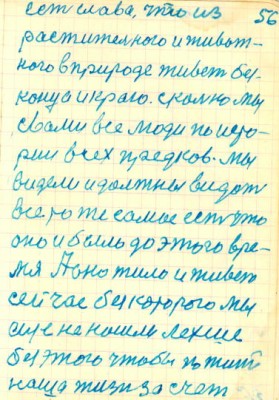 ест слава, что из 56
растителного и живот-
ного в природе живет без
конца и краю. сколко мы
с вами все люди по исто-
рии всех предков. мы
видели и должны видат
все то же самое ест что
оно и было до этого вре-
мя А оно жило и живет
сейчас без которого мы
еще не нашли легше
без этого чтобы кто жит
наша жизн за счет